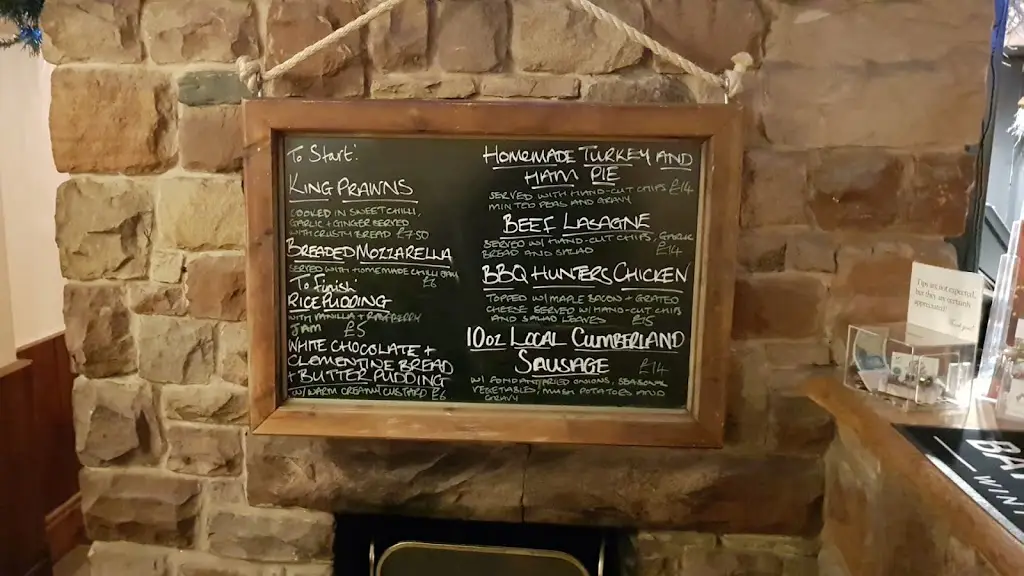 To Start:
KING PRAWNS
COOKED IN SWEET CHILLI,
GARLIC + GINGER SERVED
WITH CRUSTY BREAD £7.50
BREADED MOZZARELLA
SERVED WITH HOMEMADE CHILLI JAM
£6
To Finish:
RICE PUDDING
WITH VANILLA + RASPBERRY
JAM £5
WHITE CHOCOLATE +
CLEMENTINE BREAD
+ BUTTER PUDDING
W/ WARM CREAMY CUSTARD £6
HOMEMADE TURKEY AND
HAM PIE
SERVED WITH HAND-CUT CHIPS £14
MINTED PEAS AND GRAVY
BEEF LASAGNE
SERVED W/ HAND-CUT CHIPS, GARLIC
BREAD AND SALAD £14
BBQ HUNTERS CHICKEN
TOPPED W/ MAPLE BACON + GRATED
CHEESE SERVED W/ HAND-CUT CHIPS
AND SALAD LEAVES £15
10oz LOCAL CUMBERLAND
SAUSAGE £14
W/ FONDANT FRIED ONIONS, SEASONAL
VEGETABLES, MASH POTATOES AND
GRAVY
Tips are not expected,
but they are certainly
appreciated!